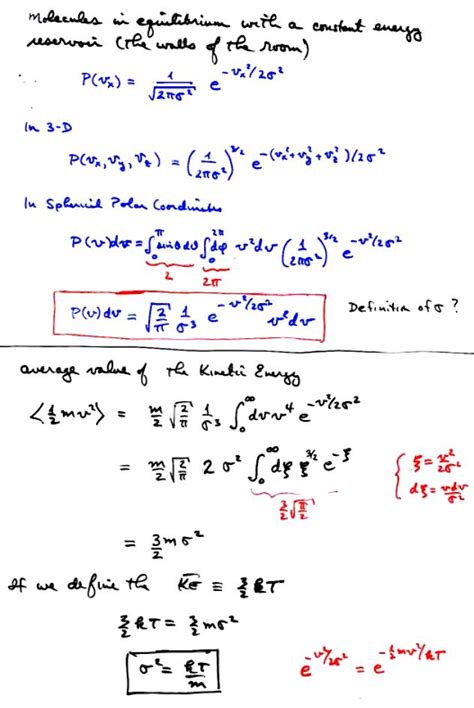 Molecules in equilibrium with a constant energy
reservoir (the walls of the room)
P(vₓ) = 1/√(2πσ²) e^(-vₓ²/2σ²)
In 3-D
P(vₓ, v_y, v_z) = (1/2πσ²)^(3/2) e^(-(vₓ²+v_y²+v_z²)/2σ²)
In Spherical Polar Coordinates
P(v)dv = ∫₀^π sinθdθ ∫₀^2π dφ v²dv (1/2πσ²)^(3/2) e^(-v²/2σ²)
2 2π
P(v)dv = √(2/π) 1/σ³ e^(-v²/2σ²) v²dv Definition of σ ?
average value of the Kinetic Energy
⟨½mv²⟩ = m/2 √(2/π) 1/σ³ ∫₀^∞ dv v⁴ e^(-v²/2σ²)
= m/2 √(2/π) 2σ² ∫₀^∞ dξ ξ^(3/2) e^(-ξ) { ξ = v²/2σ²
dξ = vdv/σ²
3/2 √π/2
= 3/2 mσ²
If we define the K̅E̅ ≡ 3/2 kT
3/2 kT = 3/2 mσ²
σ² = kT/m e^(-v²/2σ²) = e^(-½mv²/kT)